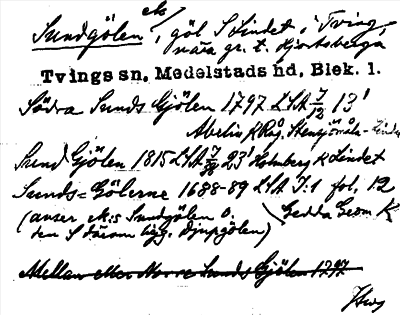 Sundgölen, göl S Lindet i Tving,
nära gr. t. Hjortsberga
Tvings sn, Medelstads hd, Blek. l.
Södra Sunds Gjölen 1797 LSA 7/12 13'
Abelin K Råg. Stensjömåla-Lindet
Sund Gjölen 1815 LSA 23' Holmberg K Lindet
Sunds=Gölerne 1688-89 LSA I:1 fol. 12
(avser ek:s Sundgölen o. Gedda Geom K
den S därom ligg. Djupgölen)
Mellan eller Norre Sunds Gjölen 1797